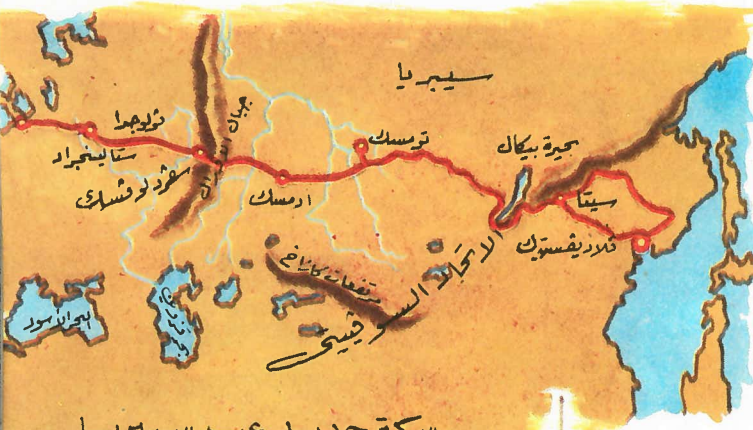 سيبريا
ڤولوجدا
ستالينجراد
سفردلوفسك
جبال الاورال
ادمسك
تومسك
بحيرة بيكال
سيتا
ڤلاديفستوك
مرتفعات كازاخ
الاتحاد السوڤييتى
البحر الأسود
بحر قزوين